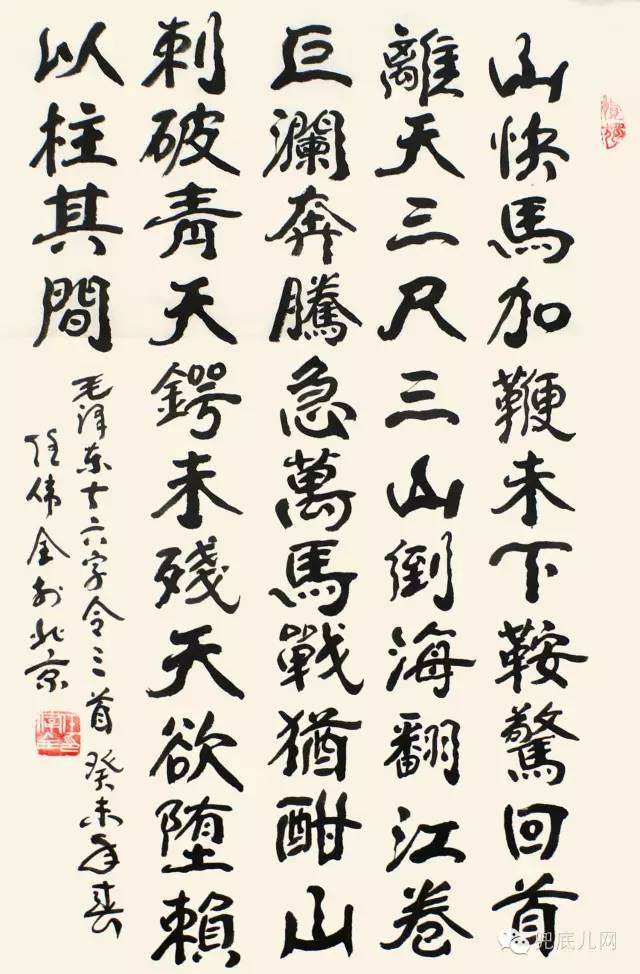 山快馬加鞭未下鞍驚回首
離天三尺三山倒海翻江卷
巨瀾奔騰急萬馬戰猶酣山
刺破青天鍔未殘天欲堕賴
以柱其間
毛泽东十六字令三首 癸未年春
任伟全於北京
兜底儿网